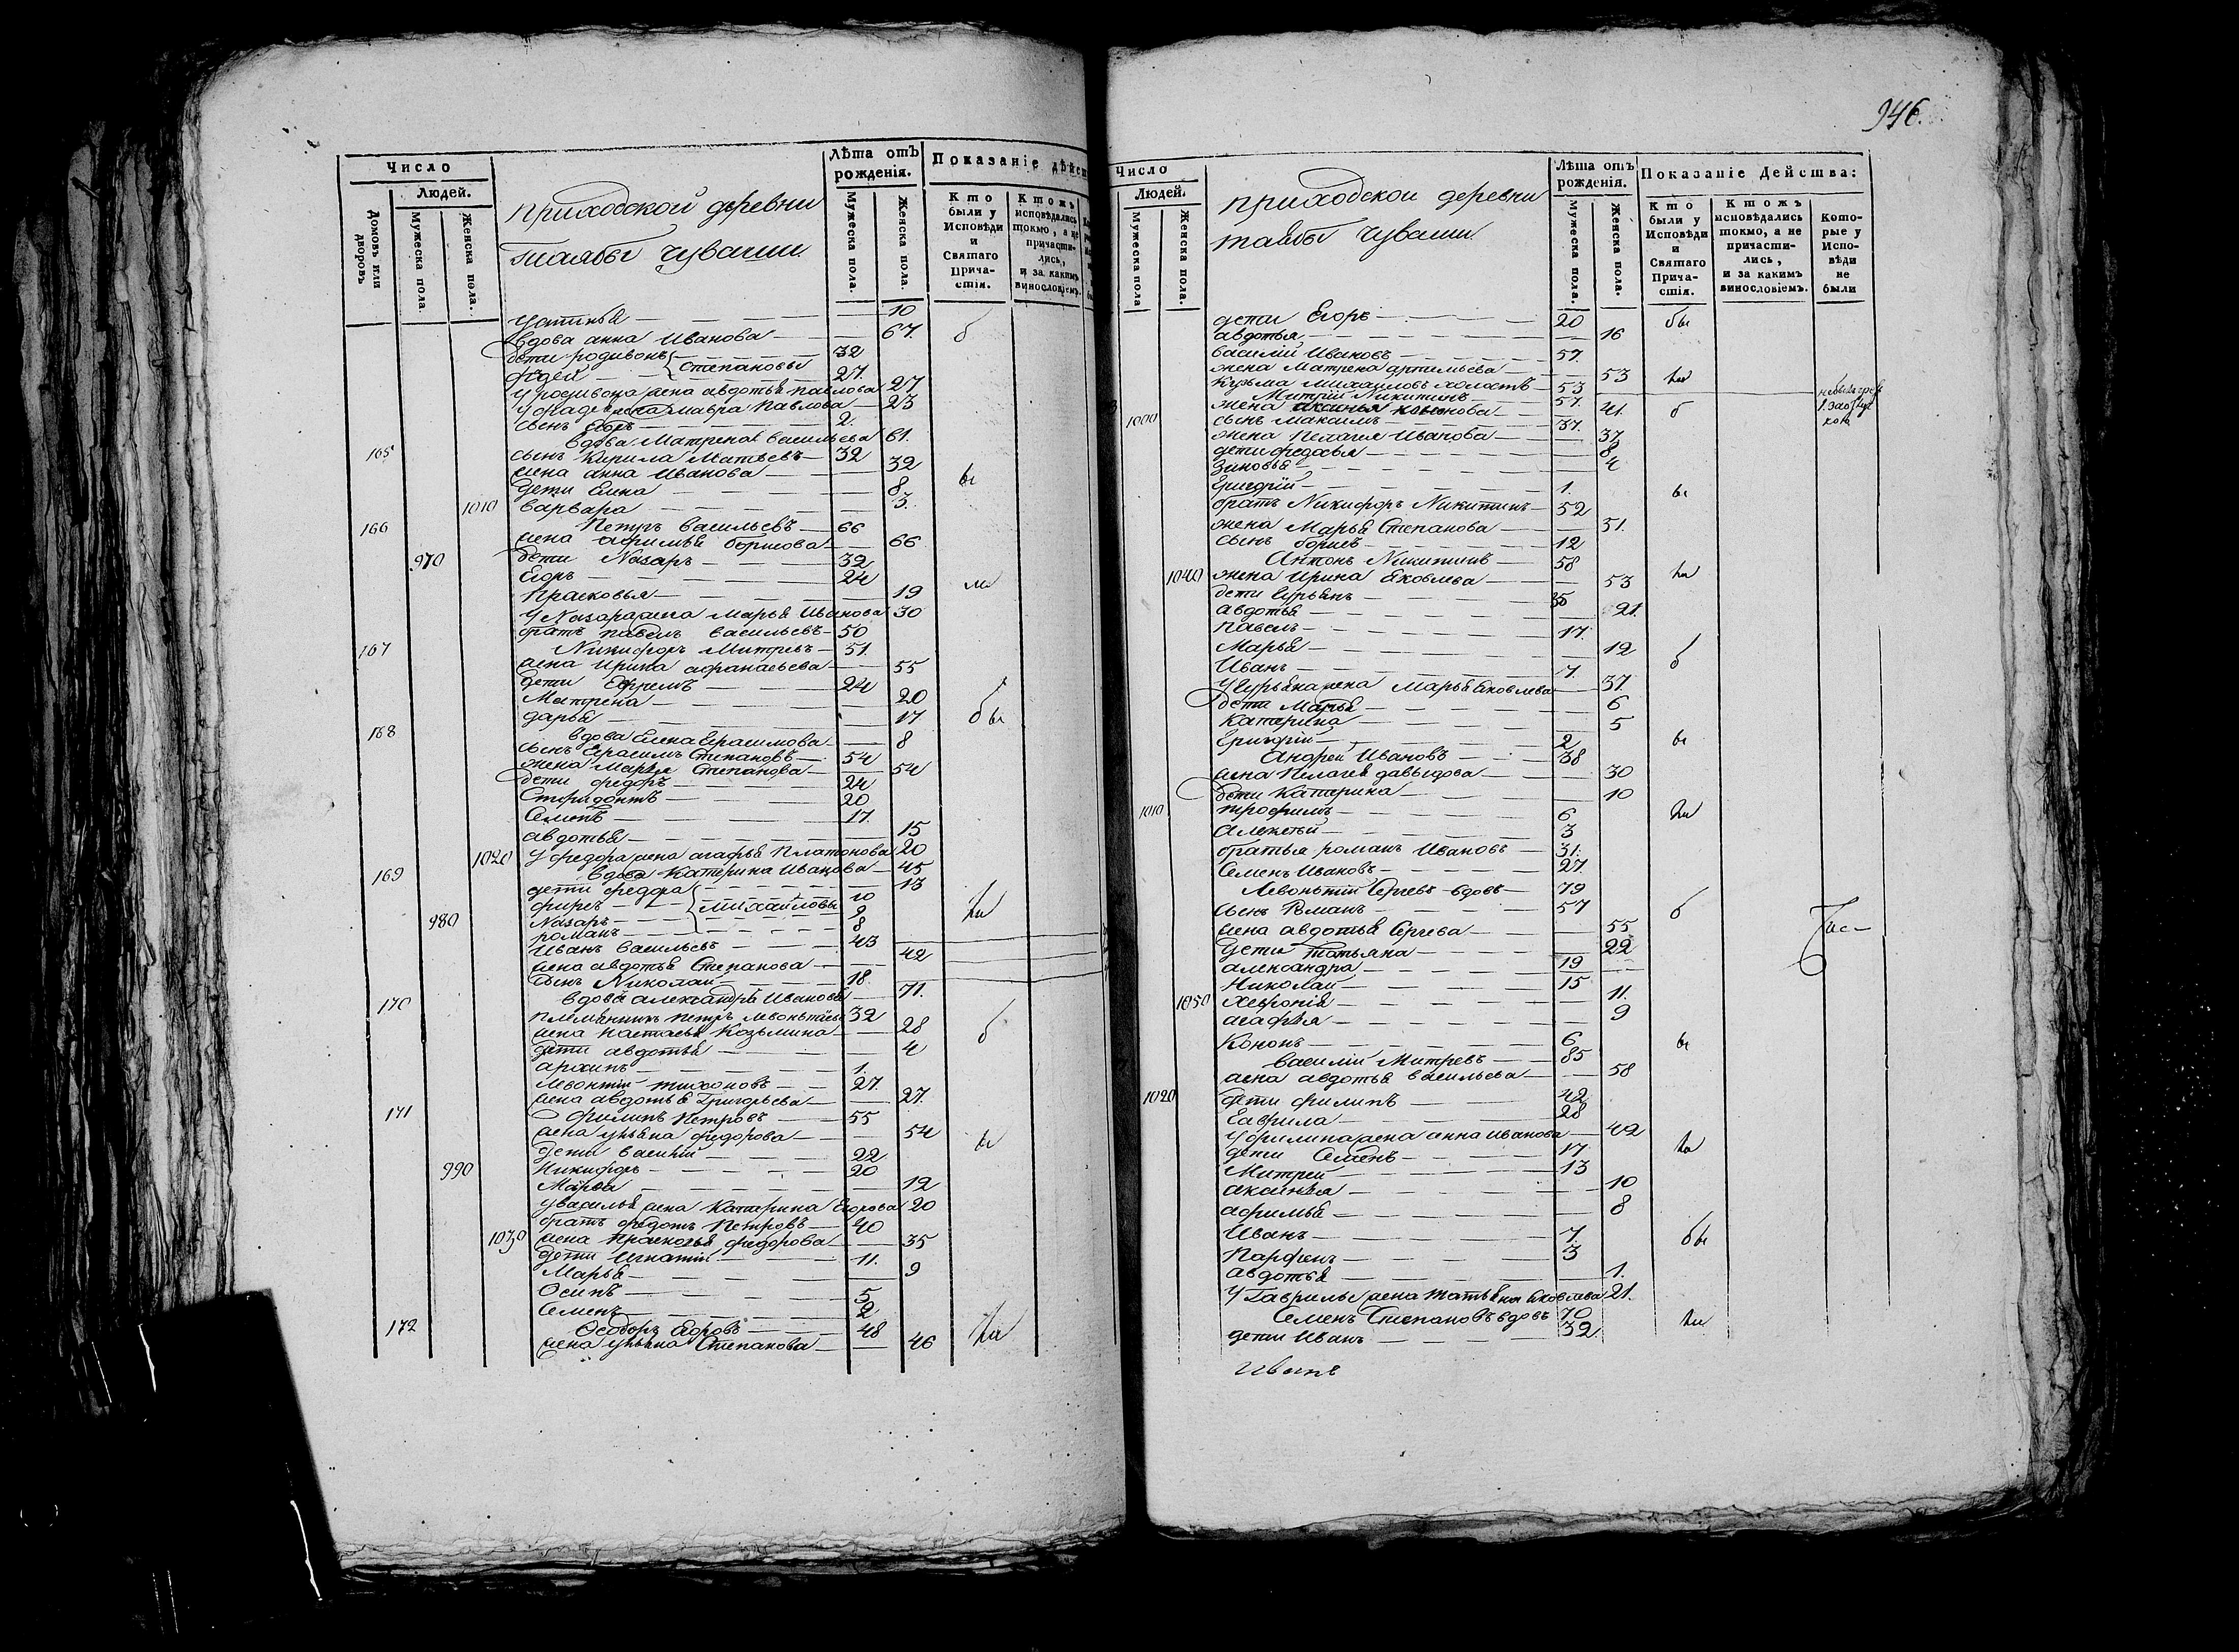 Число
Людей.
Домовъ или дворовъ
Мужеска пола
Женска пола.
приходской деревни
таябы чуваши.
Лѣта отъ рожденія.
Мужеска пола.
Женска пола.
Показаніе дѣйст
Кто были у Исповѣди и Святаго Причастія.
Ктожъ исповѣдались токмо, а не причастились, и за какимъ винословіемъ.
10
вдова анна Иванова 67 б
дети родивонъ 32
Степановы
фадей 27
у родивона жена авдотья павлова 27
у фадея жена мавра павлова 23
сынъ 2
вдова Матрена васильева 61
165 сынъ Кирила Матвевъ 32
жена анна Иванова 32 ы
дети Елена 8
1010 варвара 3
166 Петръ васильевъ 66
жена афимья борисова 66
970 дети Nазаръ 32
Егоръ 24
Прасковья 19 ли
у Nазара жена марья Иванова 30
братъ павелъ васильевъ 50
167 Никифоръ Митревъ 51
жена ирина афанасьева 55
дети Ефремъ 24
Матрена 20
дарья 17 бы
168 вдова Елена Герасимова 8
сынъ Герасимъ Степановъ 54
жена Марья Степанова 54
дети федоръ 24
Спиридонъ 20
Семенъ 17
авдотья 15
1020 у федора жена агафья Платонова 20
169 вдова Катерина Иванова 45
дети федора 13
фирсъ 10
Михайловы
980 Nазаръ 9 ли
романъ 8
Иванъ васильевъ 43
жена авдотья Степанова 42
сынъ Николай 18
170 вдова александра Иванова 71
племянникъ петръ левонтьевъ 32
жена настасья Козьмина 28 б
дети авдотья 4
архипъ 1
левонтий тихоновъ 27
жена авдотья Григорьева 27
171 филипъ петровъ 55
жена ульяна федорова 54
дети василий 22 ы
990 Никифоръ 20
Марфа 12
у василья жена Катерина Егорова 20
братъ федотъ Петровъ 40
1030 жена Прасковья федорова 35
дети Игнатий 11
Марья 9
Осипъ 5
Семенъ 2
172 Феодоръ Егоровъ 48
жена ульяна Степанова 46 ли
946.
Число
Людей.
Мужеска пола
Женска пола.
приходской деревни
таябы чуваши.
Лѣта отъ рожденія.
Мужеска пола.
Женска пола.
Показаніе Дейсшва:
Кто были у Исповѣди и Святаго Причастія.
Ктожъ исповѣдались токмо, а не причастились, и за какимъ винословіемъ.
Которые у Исповѣди не были
дети Егоръ 20 бы
авдотья 16
василий Ивановъ 57
жена Матрена артемьева 53 ли
Кузьма михаиловъ холостъ 53
Митрий Никитинъ 57
1000 жена аксинья 41 б
сынъ максимъ 37
жена пелагея Иванова 37
дети федосья 8
Зиновья 4
Григорий 1 ы
братъ Никифоръ Никитинъ 52
жена Марья Степанова 51
сынъ борисъ 12
Антонъ Никитинъ 58
1040 жена ирина яковлева 53 ли
дети Гурьянъ 35
авдотья 21
павелъ 17
Марья 12
Иванъ 7 б
у Гурьяна жена марья яковлева 37
дети Марья 6
катерина 5
Григорий 2 ы
Андрей Ивановъ 38
жена пелагея давыдова 30
дети Катерина 10
1010 трофимъ 6 ли
алексей 3
братья романъ Ивановъ 31
Семенъ Ивановъ 27
Левонтий Сергевъ вдовъ 79
сынъ Романъ 57 б
жена авдотья Сергева 55
дети татьяна 22
александра 19
Николай 15
1050 Хеврония 11
агафья 9
Кононъ 6 ы
василий Митревъ 85
жена авдотья васильева 58
1020 дети филипъ 42
Гаврила 28
у филипа жена анна иванова 42
дети Семенъ 17 ли
Митрей 13
аксинья 10
афимья 8
Иванъ 7 бы
Парфенъ 3
авдотья 1
у Гаврилы жена татьяна яковлева 21
Семенъ Степановъ вдовъ 70
дети Иванъ 32 ли
Иванъ